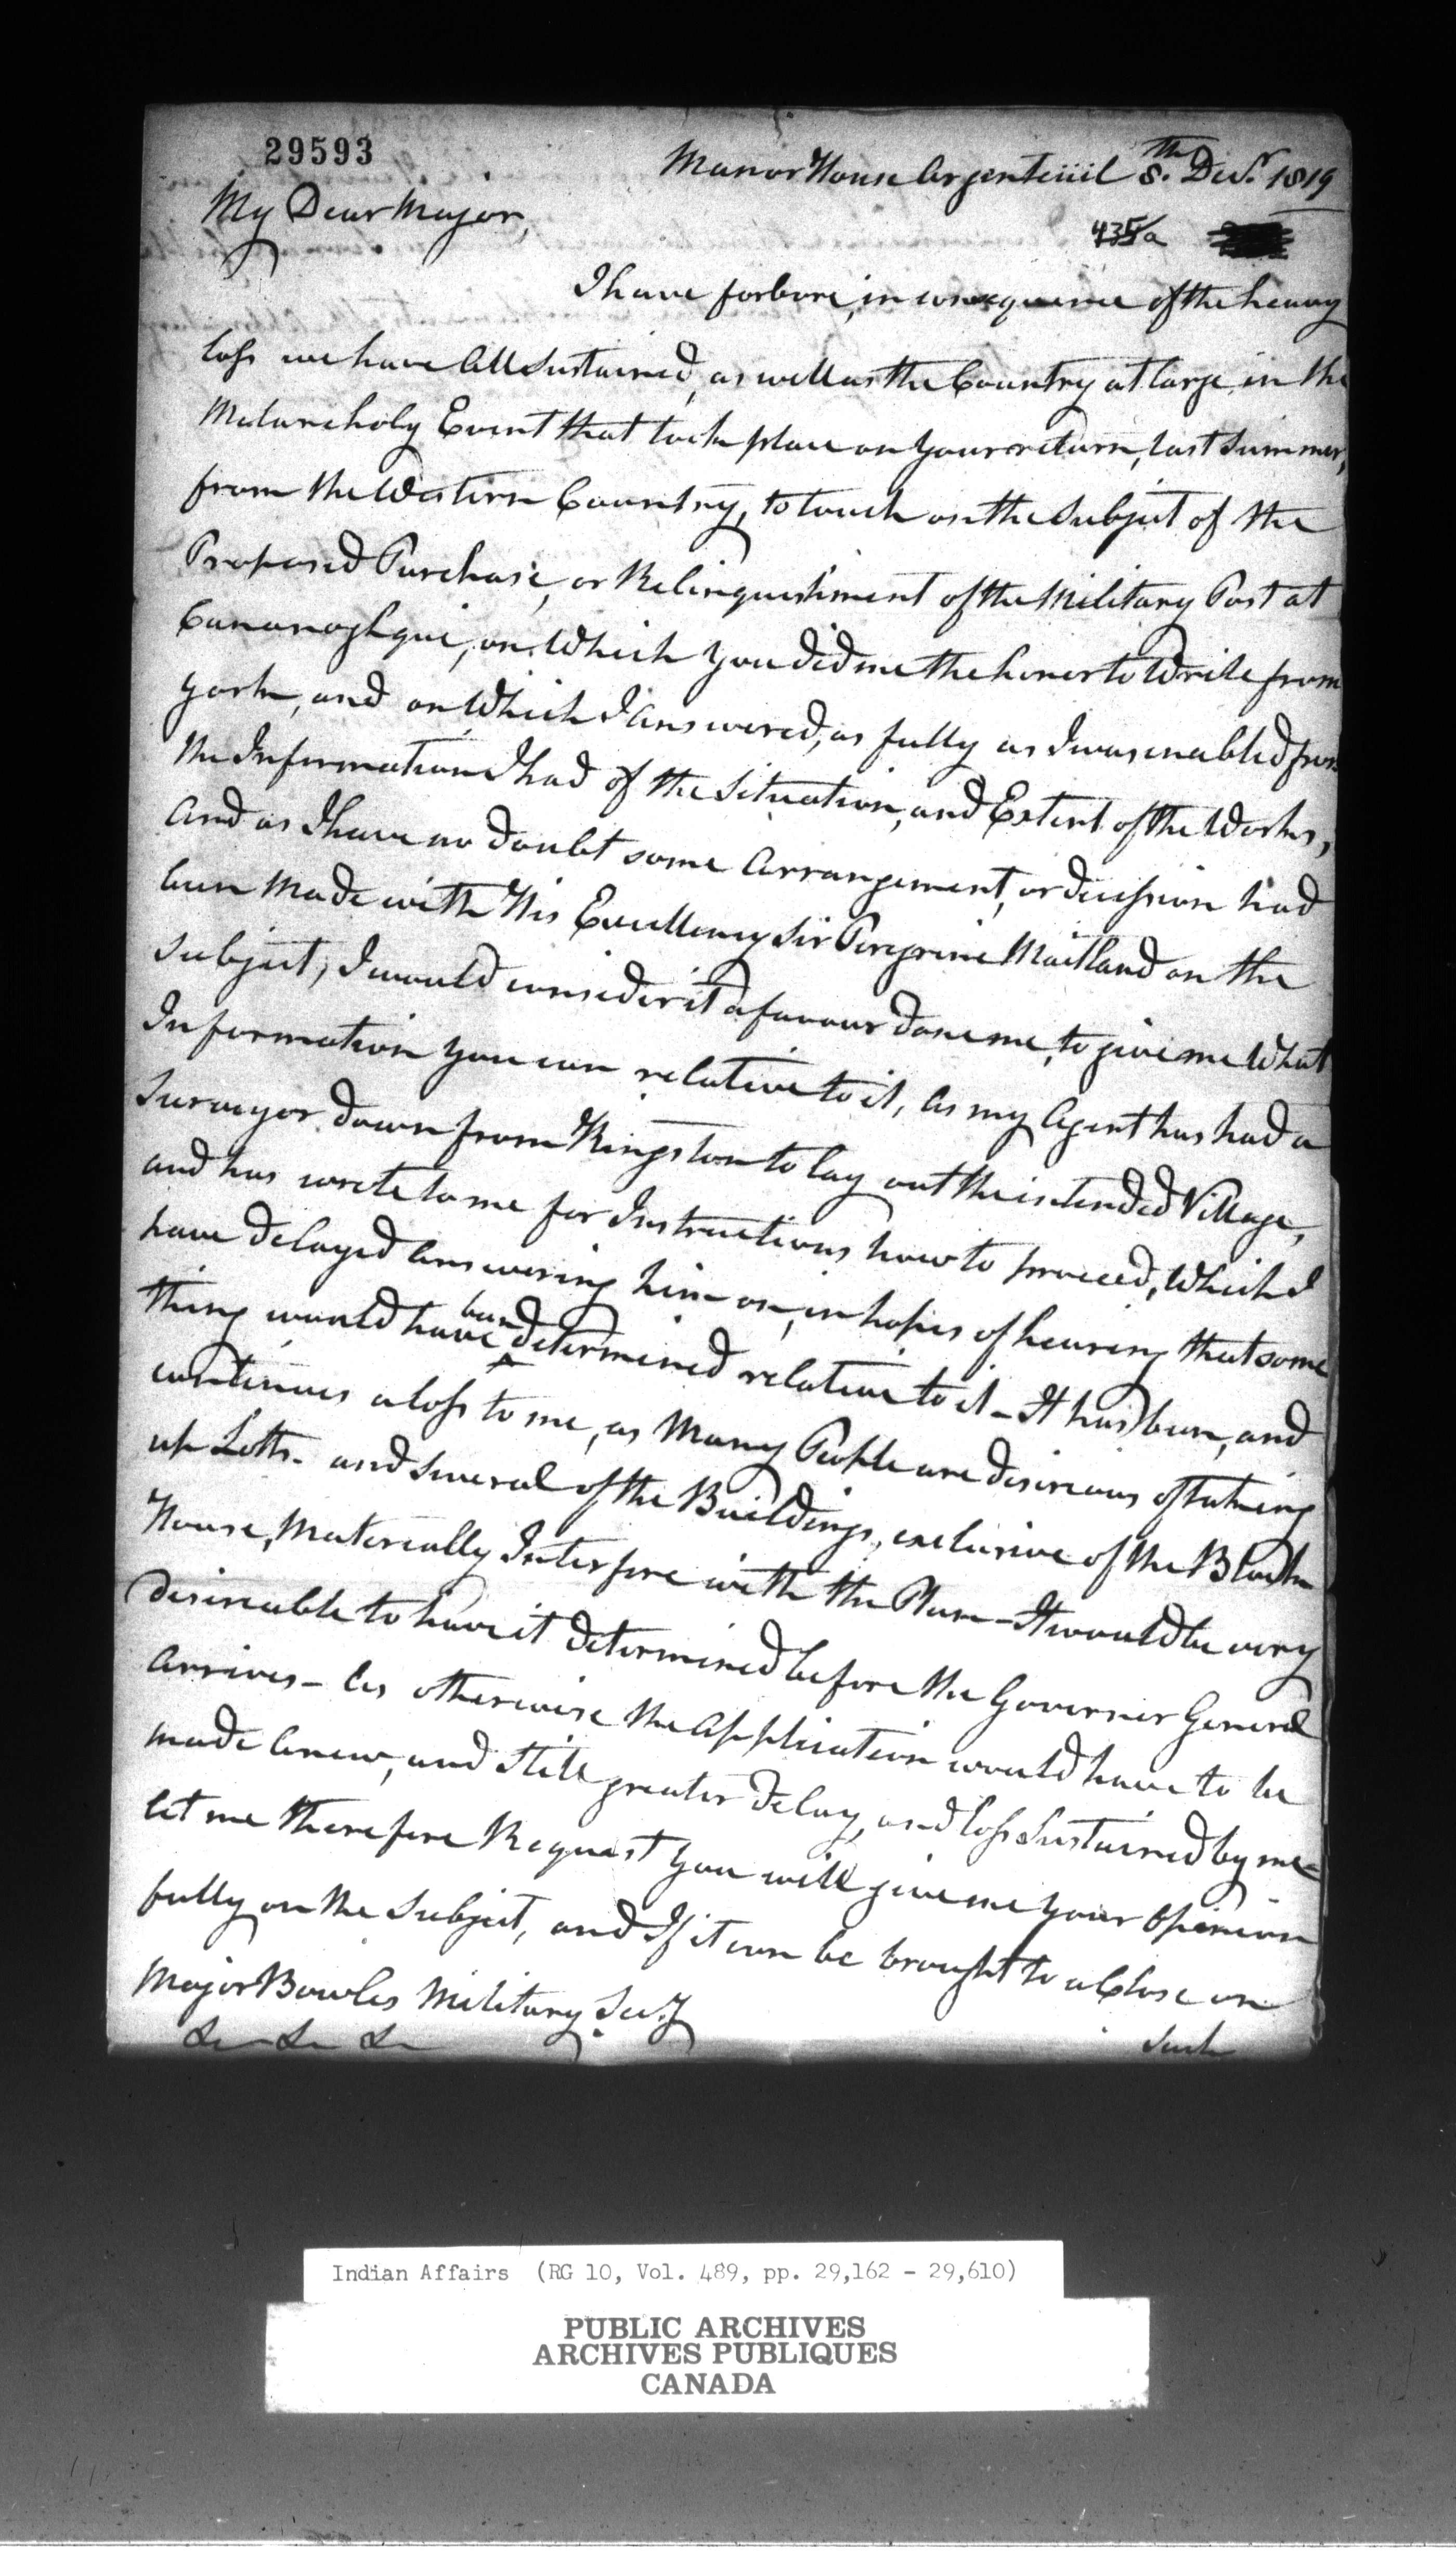 29593
Manor House Argenteüil 8.th Decr. 1819
My Dear Major,
435/a
I have forbore, in consequence of the heavy
loss we have All Sustained, as well as the Country at large, in the
Melancholy Event that took place on your return, last Summer,
from the Western Country, to touch on the Subject of the
Proposed Purchase, or Relinquishment of the Military Post at
Cananoghqui, on Which you did me the honor to Write from
York, and on Which I Answered, as fully as I was enabled from
the Information I had of the Situation, and Extent of the Works,
And as I have no doubt some Arrangement, or decission had
been Made with His Excellency Sir Peregrine Maitland on the
Subject, I would consider it a favour done me, to give me What
Information you can relative to it, As my Agent has had a
Surveyor down from Kingston to lay out the intended Village,
and has wrote to me for Instructions how to proceed, Which I
have delayed Answering him on, in hopes of hearing that some
thing would have been determined relative to it - It has been, and
continues a loss to me, as Many People are desireous of taking
up Lotts - and Several of the Buildings, exclusive of the Block
House, Materially Interfere with the Plan - It would be very
desireable to have it determined before the Governor General
Arrives - As otherwise the Application would have to be
made Anew, and Still greater delay, and loss Sustained by me -
let me therefore Request you will give me your Opinion
fully on the Subject, and If it can be brought to a Close on
Major Bowles Military Secy.
&c &c &c
Such
Indian Affairs (RG 10, Vol. 489, pp. 29,162 - 29,610)
PUBLIC ARCHIVES
ARCHIVES PUBLIQUES
CANADA